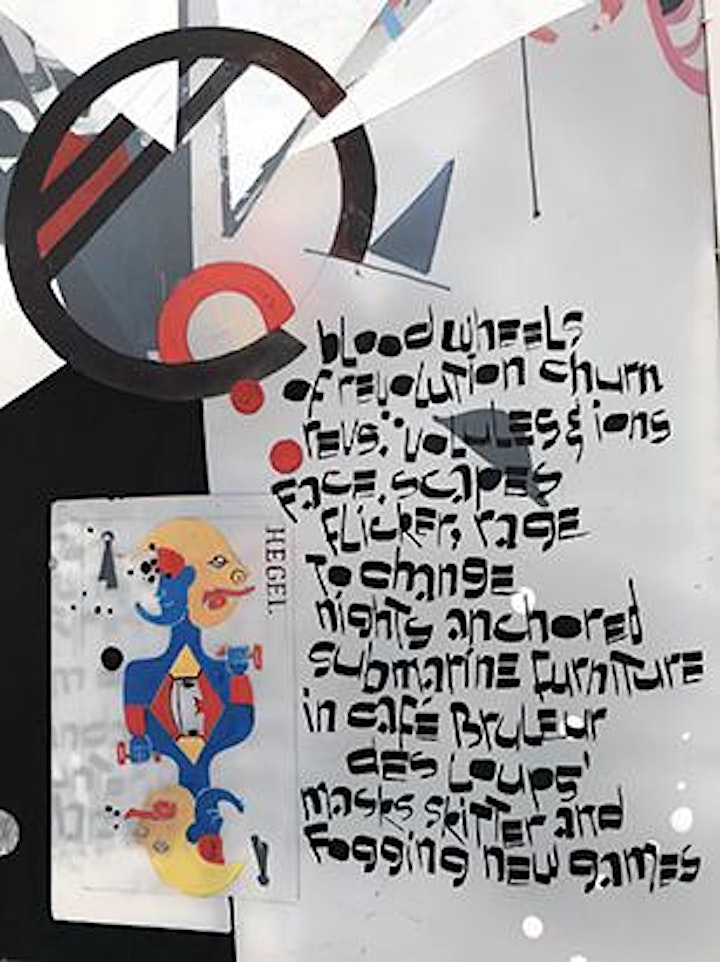 blood wheels
of revolution churn
revs. volutes & ions
face. scapes
flicker, rage
To change
nights anchored
submarine furniture
in café Bruleur
des Loups'
masks skitter and
fogging new games
HEGEL